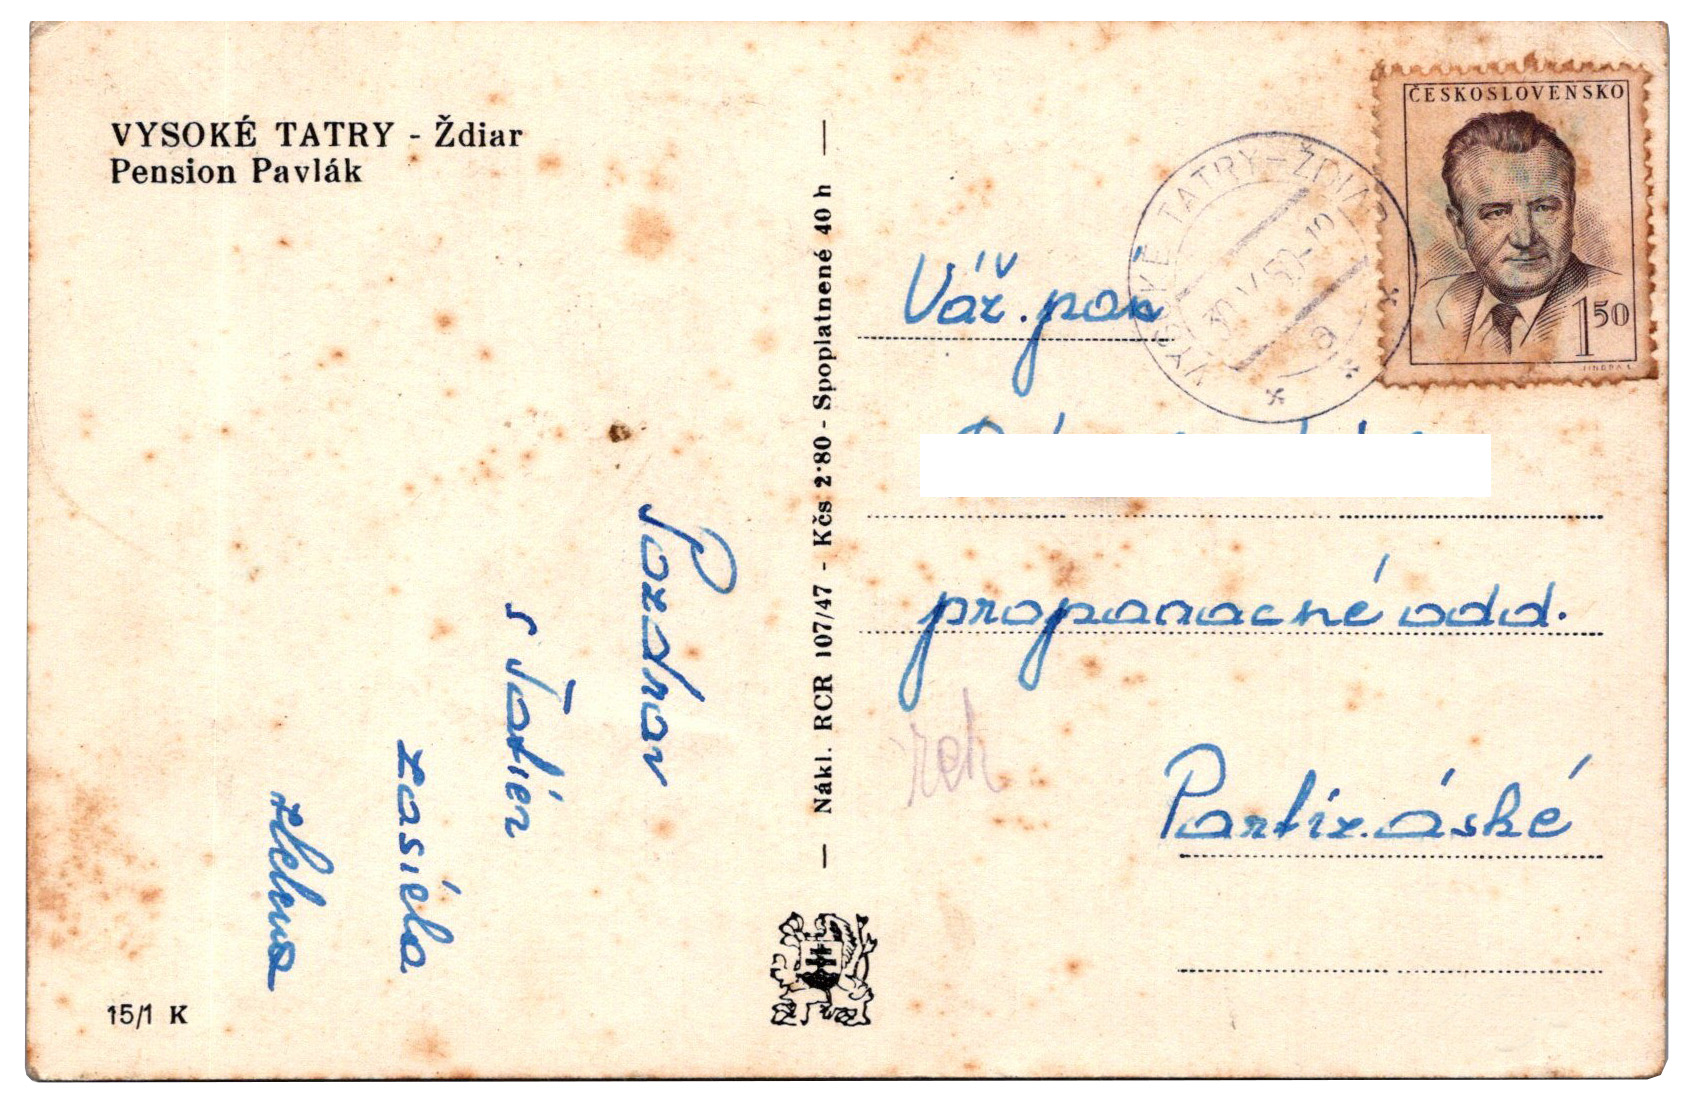 VYSOKÉ TATRY - Ždiar
Pension Pavlák
Pozdrav
s Tatier
zasiela
Helena
15/1 K
— Nákl. RCR 107/47 - Kčs 2·80 - Spoplatnené 40 h —
ČESKOSLOVENSKO
1 50
VYSOKÉ TATRY - ŽDIAR
30.V.50-10
a
Váž. pán
propagačné odd.
Partizáské